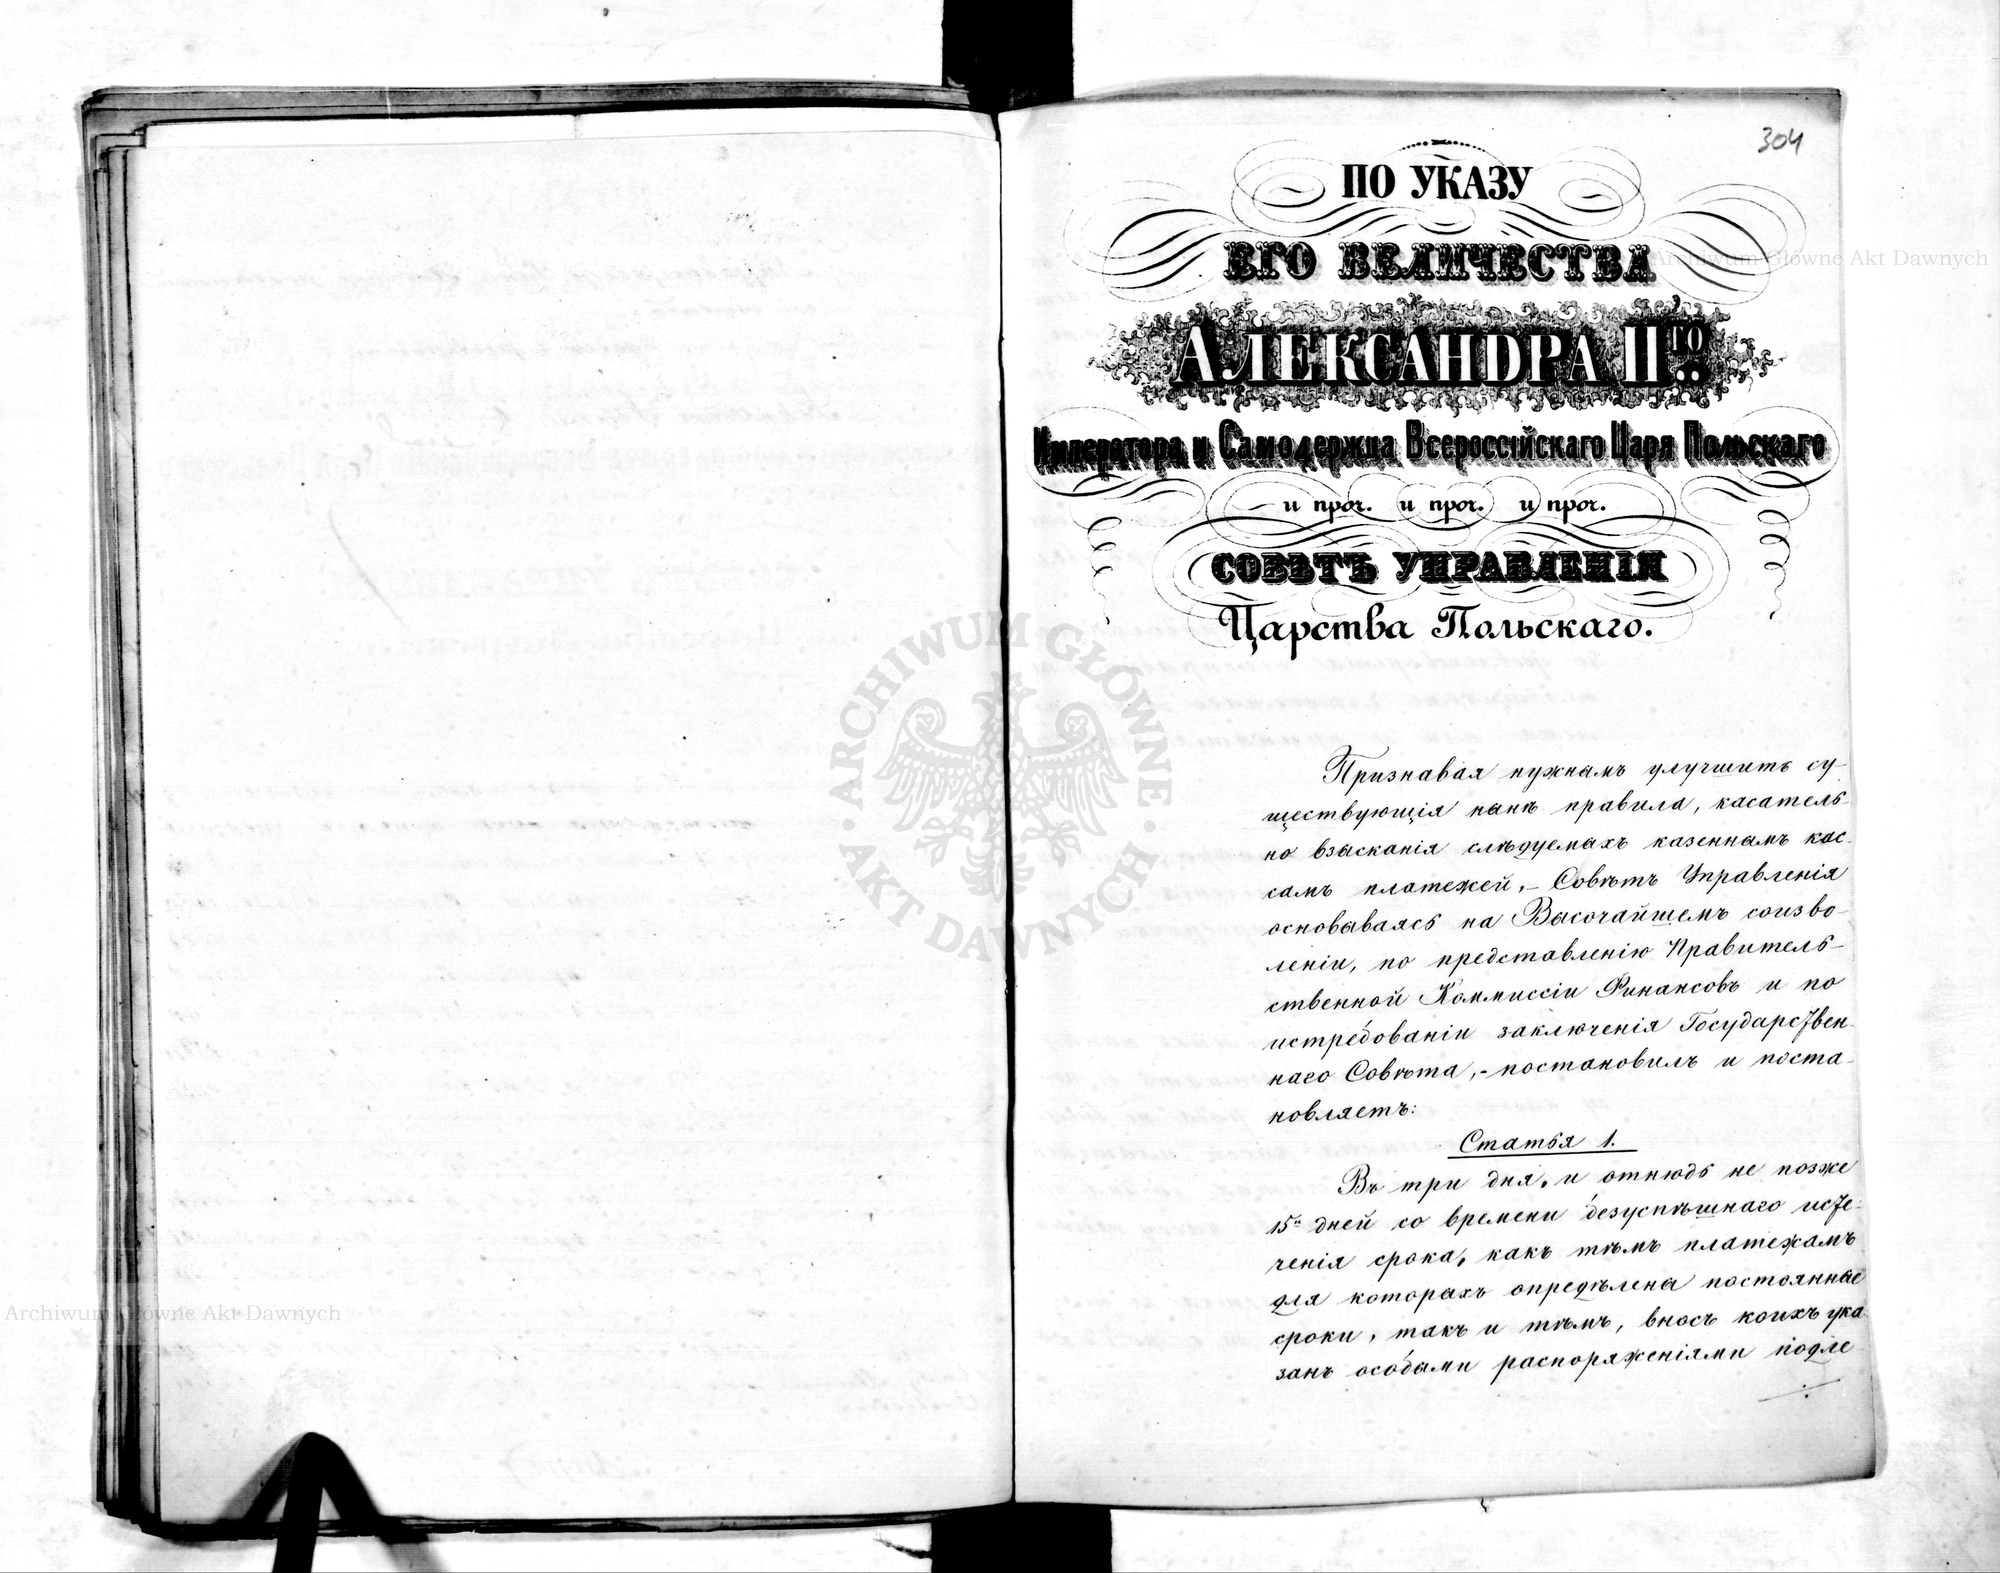 304
ПО УКАЗУ
ЕГО ВЕЛИЧЕСТВА
АЛЕКСАНДРА IIГО
Императора и Самодержца Всероссійскаго Царя Польскаго
и проч. и проч. и проч.
СОВѢТЪ УПРАВЛЕНІЯ
Царства Польскаго.
Признавая нужнымъ улучшить су-
ществующія нынѣ правила, касатель-
но взысканія слѣдуемыхъ казеннымъ кас-
самъ платежей, – Совѣтъ Управленія
основываясь на Высочайшемъ соизво-
леніи, по представленію Правитель-
ственной Коммиссіи Финансовъ и по
истребованіи заключенія Государствен-
наго Совѣта, - постановилъ и поста-
новляетъ:
Статья 1.
Въ три дня, и отнюдь не позже
15и дней со времени безуспѣшнаго исте-
ченія срока, какъ тѣмъ платежамъ
для которыхъ опредѣлены постоянные
сроки, такъ и тѣмъ, вносъ коихъ ука-
занъ особыми распоряженіями подле-
Archiwum Główne Akt Dawnych
ARCHIWUM GŁÓWNE
AKT DAWNYCH
Archiwum Główne Akt Dawnych